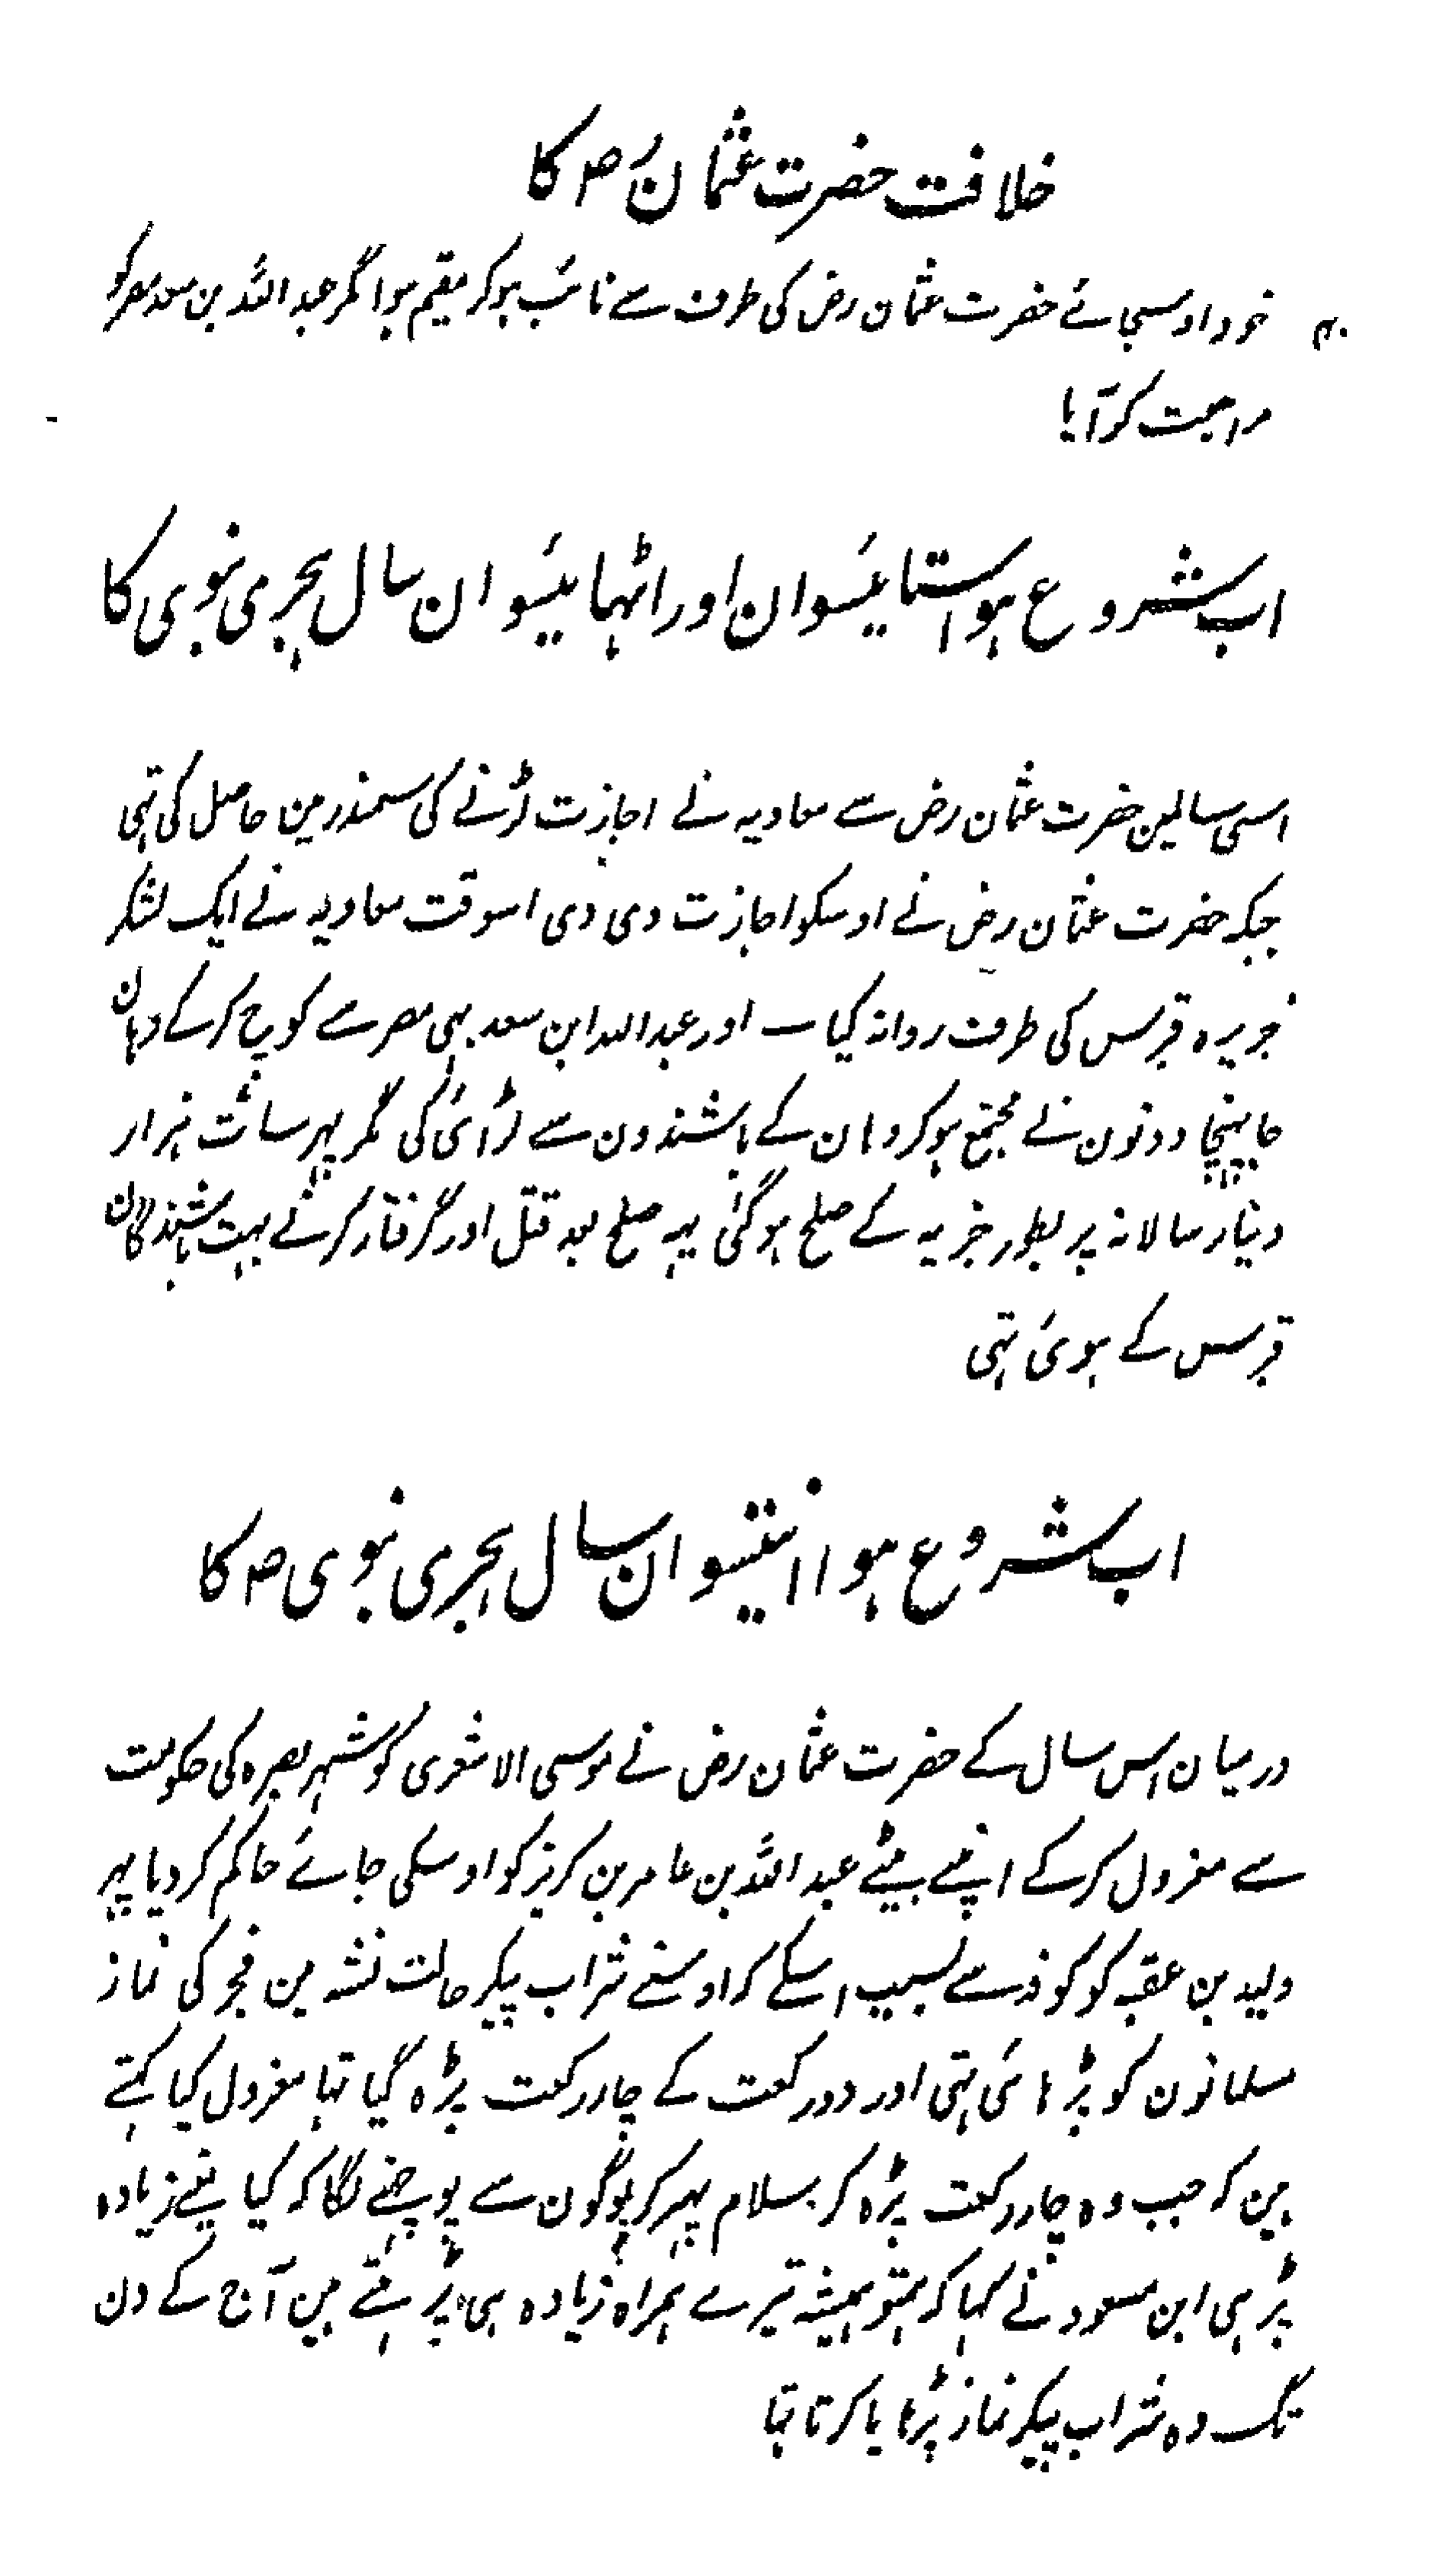 خلافت حضرت عثمان رض کا
خود اوسیجائے حضرت عثمان رض کی طرف سے نائب ہوکر مقیم ہوا مگر عبد اللہ بن سعد مصر کو
مراجعت کر آیا
اب شروع ہوا ستائیسوان اور اٹہائیسوان سال ہجری نبوی کا
اسی سالمین حضرت عثمان رض سے معاویہ نے اجازت لڑنے کی سمندر مین حاصل کی تہی
جبکہ حضرت عثمان رض نے اوسکو اجازت دی دی اسوقت معاویہ نے ایک لشکر
جزیرہ قبرس کی طرف روانہ کیا ۔ اور عبد اللہ ابن سعد بہی مصر سے کوچ کرکے وہان
جاپہنچا دونون نے مجتمع ہوکر وہان کے باشندون سے لڑائی کی مگر پہر سات ہزار
دینار سالانہ پر بطور جزیہ کے صلح ہوگئی یہہ صلح بعد قتل اور گرفتار کرنے بہت باشندگان
قبرس کے ہوئی تہی
اب شروع ہوا انتیسوان سال ہجری نبوی ص کا
درمیان اس سال کے حضرت عثمان رض نے موسی الاشعری کو شہر بصرہ کی حکومت
سے معزول کرکے اپنے بیٹے عبد اللہ بن عامر بن کریز کو اوسکی جائے حاکم کردیا پہر
ولید بن عقبہ کو کوفہ سے بسبب اسکے کہ اوسنے شراب پیکر حالت نشہ مین فجر کی نماز
مسلمانون کو پڑہائی تہی اور دو رکعت کے چار رکعت پڑہ گیا تہا معزول کیا کہتے
ہین کہ جب وہ چار رکعت پڑہ کر سلام پہیر کر لوگون سے پوچہنے لگا کہ کیا مینے زیادہ
پڑہی ابن مسعود نے کہا کہ ہمتو ہمیشہ تیرے ہمراہ زیادہ ہی پڑہتے ہین آج کے دن
تک وہ شراب پیکر نماز پڑہایا کرتا تہا